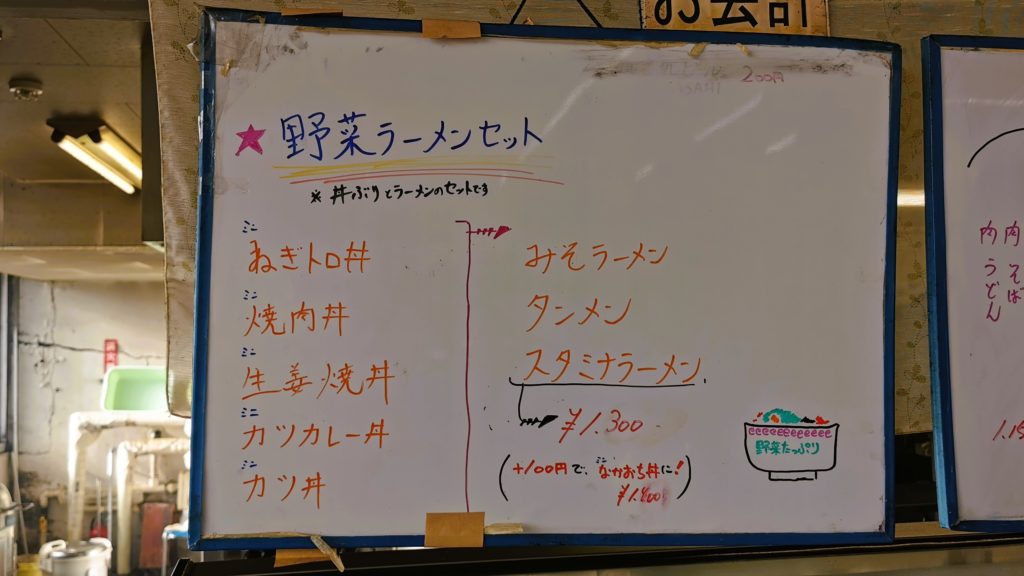 お会計
200円
★ 野菜ラーメンセット
※ 丼ぶりとラーメンのセットです
ミニ
ねぎトロ丼
ミニ
焼肉丼
ミニ
生姜焼丼
ミニ
カツカレー丼
ミニ
カツ丼
みそラーメン
タンメン
スタミナラーメン
¥1.300
(+100円で、ミニなかおち丼に!
¥1.400)
野菜たっぷり
肉そば
肉うどん